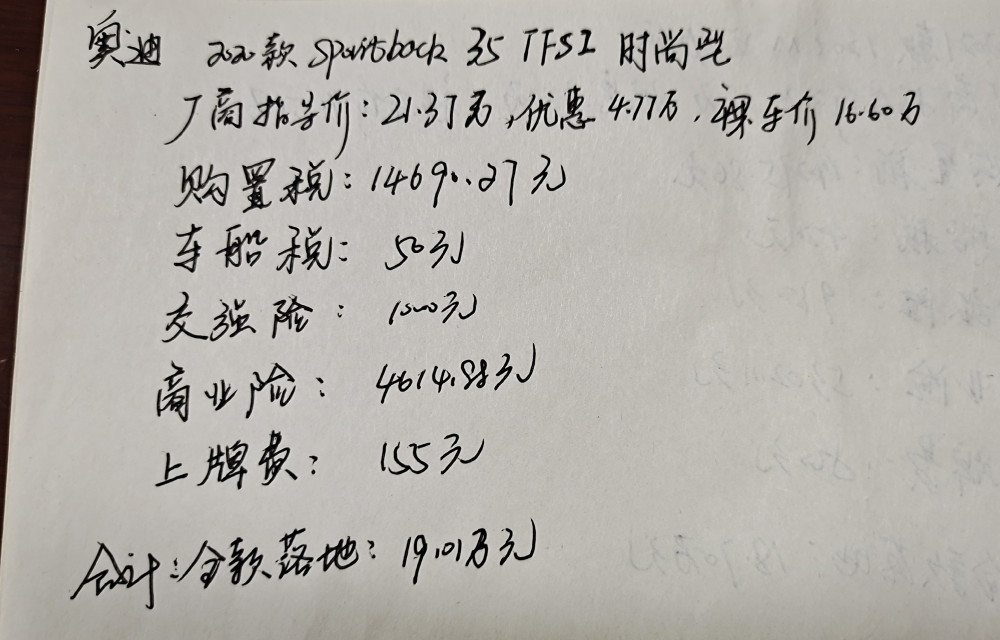 奥迪 2020款 Sportback 35 TFSI 时尚型
厂商指导价：21.37万，优惠 4.77万，裸车价 16.60万
购置税：14690.27元
车船税：50元
交强险：1000元
商业险：4614.88元
上牌费：155元
合计：全款落地：19.01万元